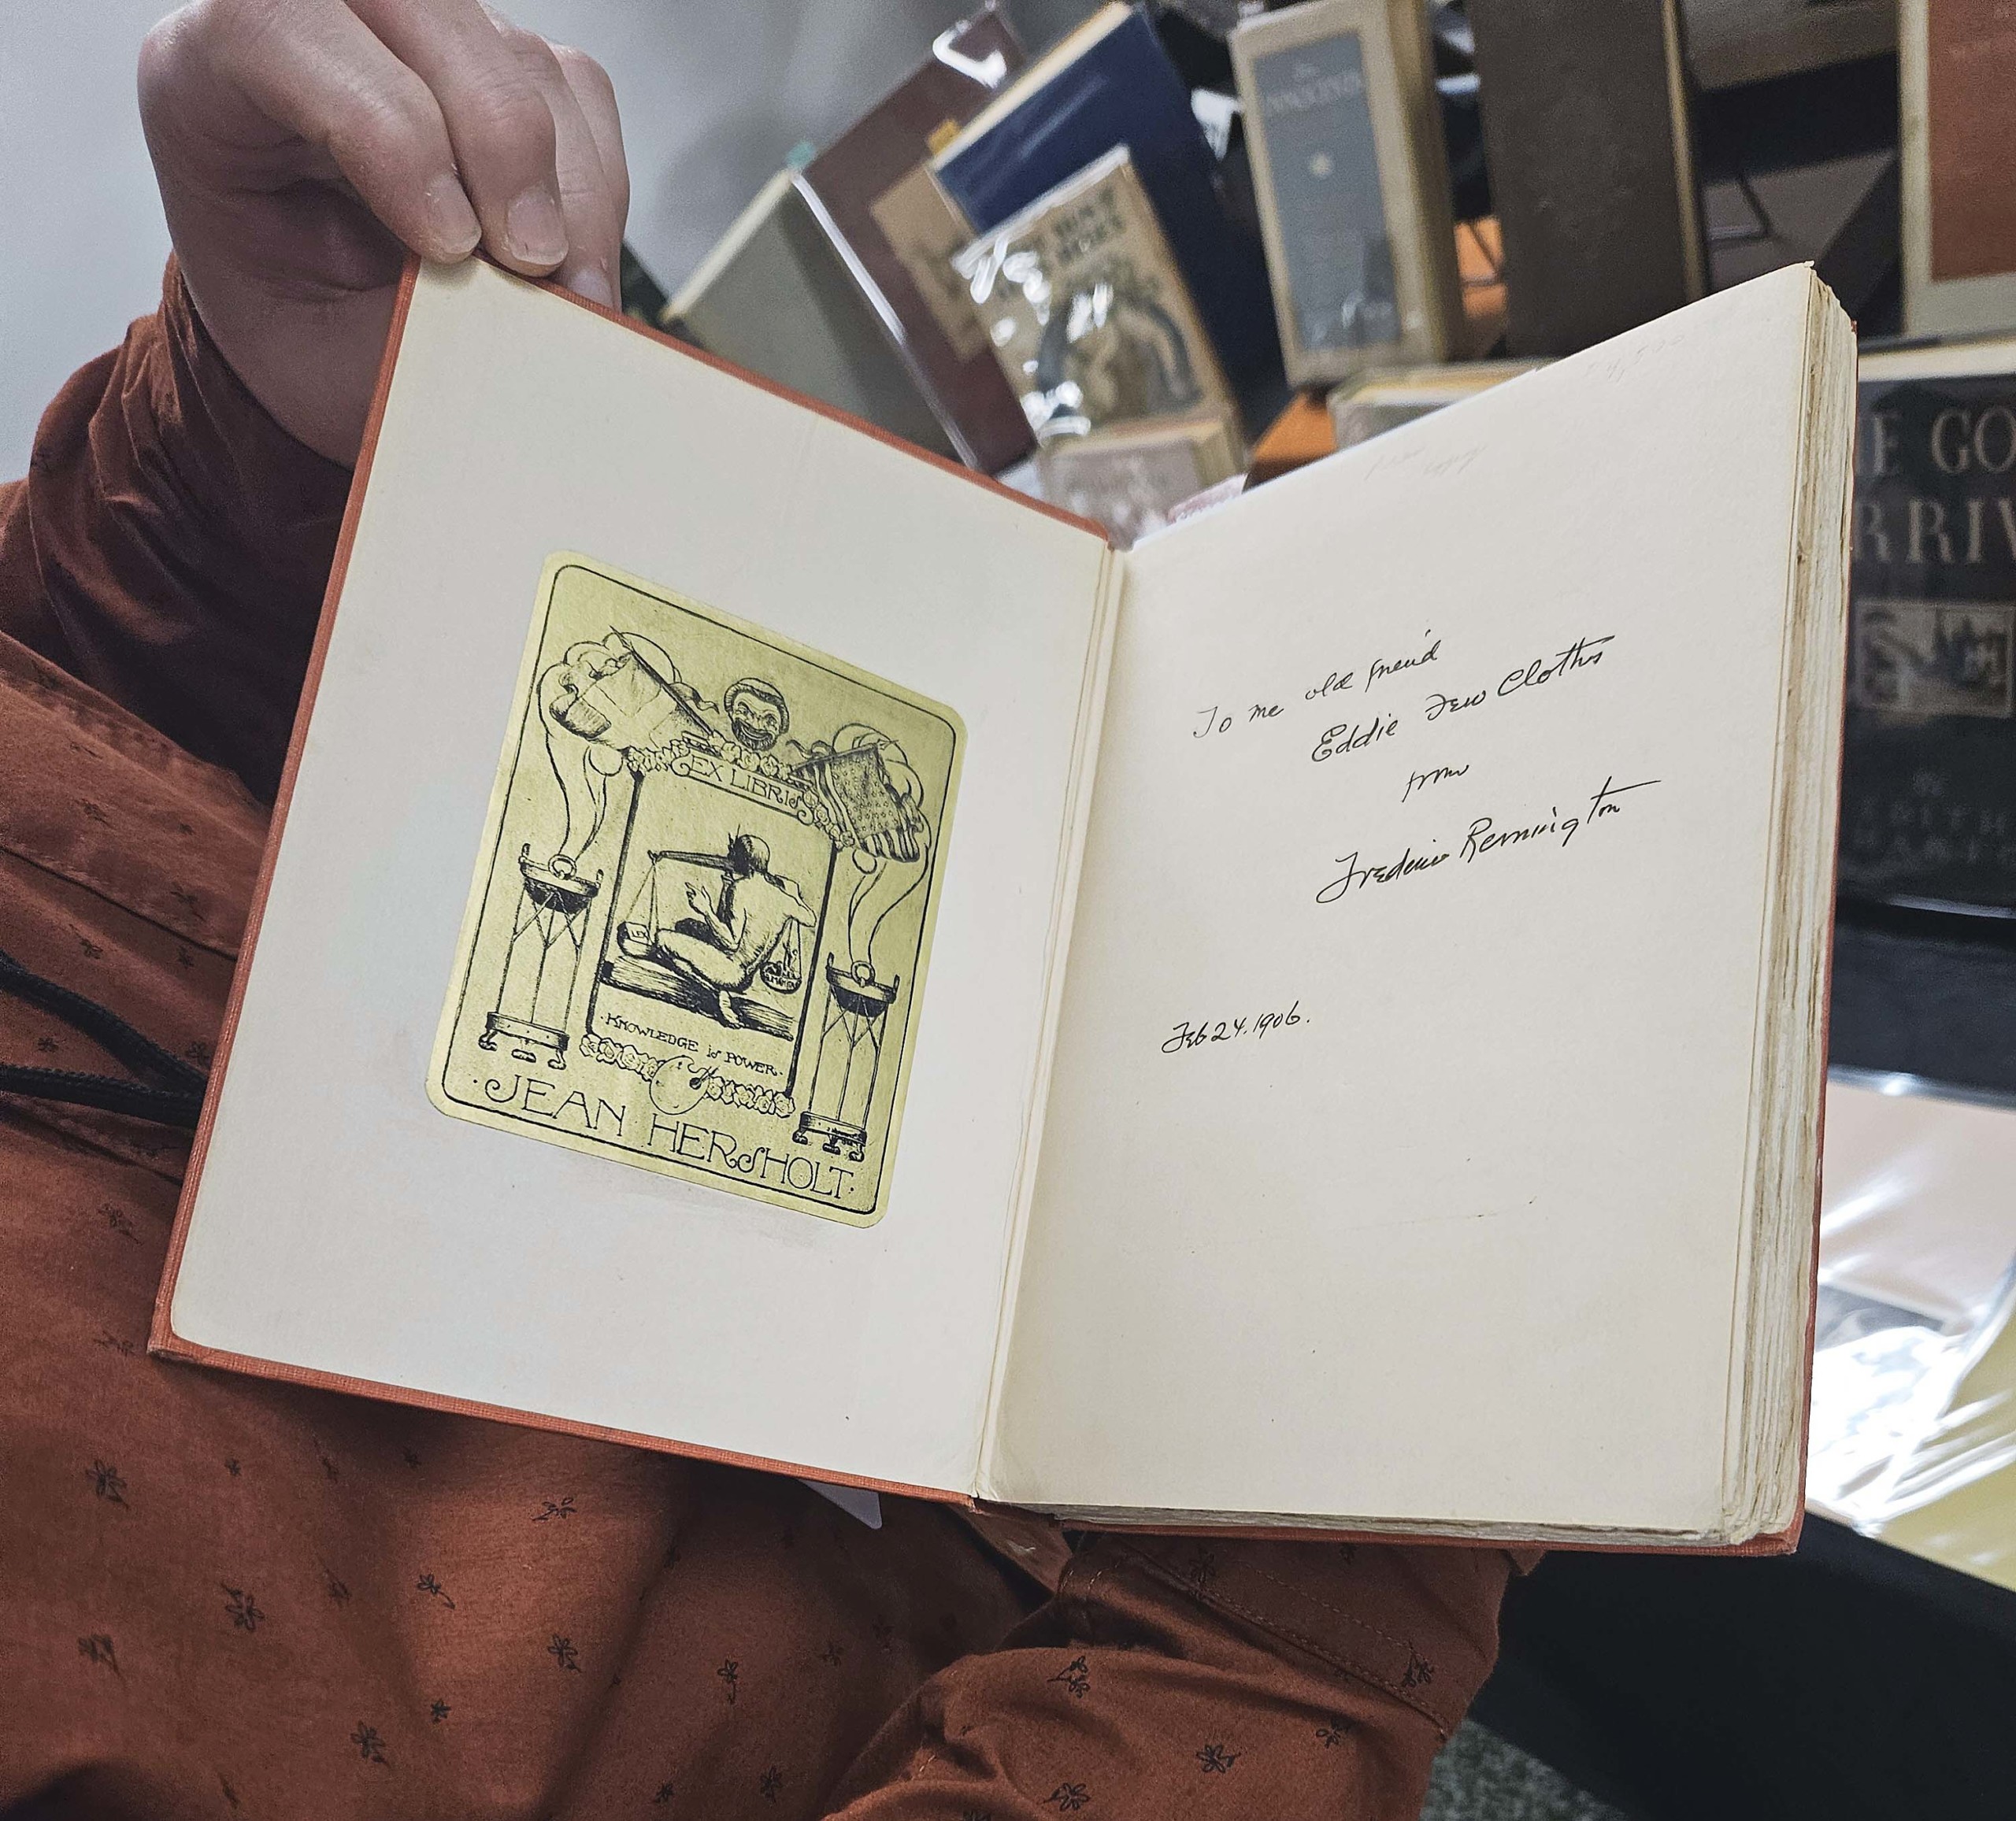 EX LIBRIS
LEX
KNOWLEDGE is POWER.
·JEAN HERSHOLT·
To me old friend
Eddie Few Cloths
from
Frederic Remington
Feb 24. 1906.
The
INNOCENTS
E GO
RRIV